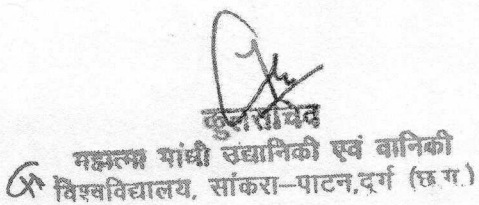 कुलसचिव
महात्मा गांधी उद्यानिकी एवं वानिकी
विश्वविद्यालय, सांकरा-पाटन,दुर्ग (छ.ग.)